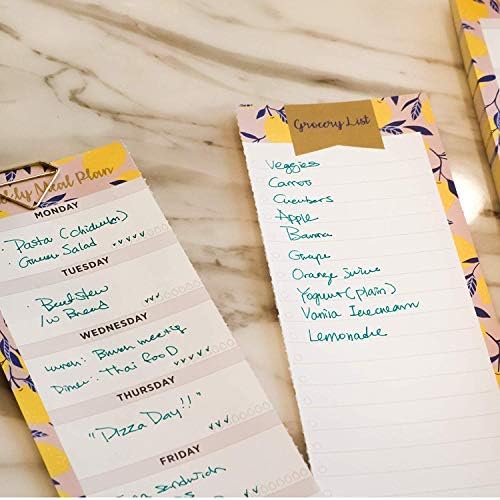 kly Meal Plan
MONDAY
Pasta (chicken)
Green Salad
TUESDAY
Beef stew
/w Bread
WEDNESDAY
Lunch: Brunch meeting
Dinner: Thai food
THURSDAY
"Pizza Day!!"
FRIDAY
sandwich
Grocery List
Veggies
Carrot
Cucumbers
Apple
Banana
Grape
Orange Juice
Yogurt (plain)
Vanilla Icecream
Lemonade